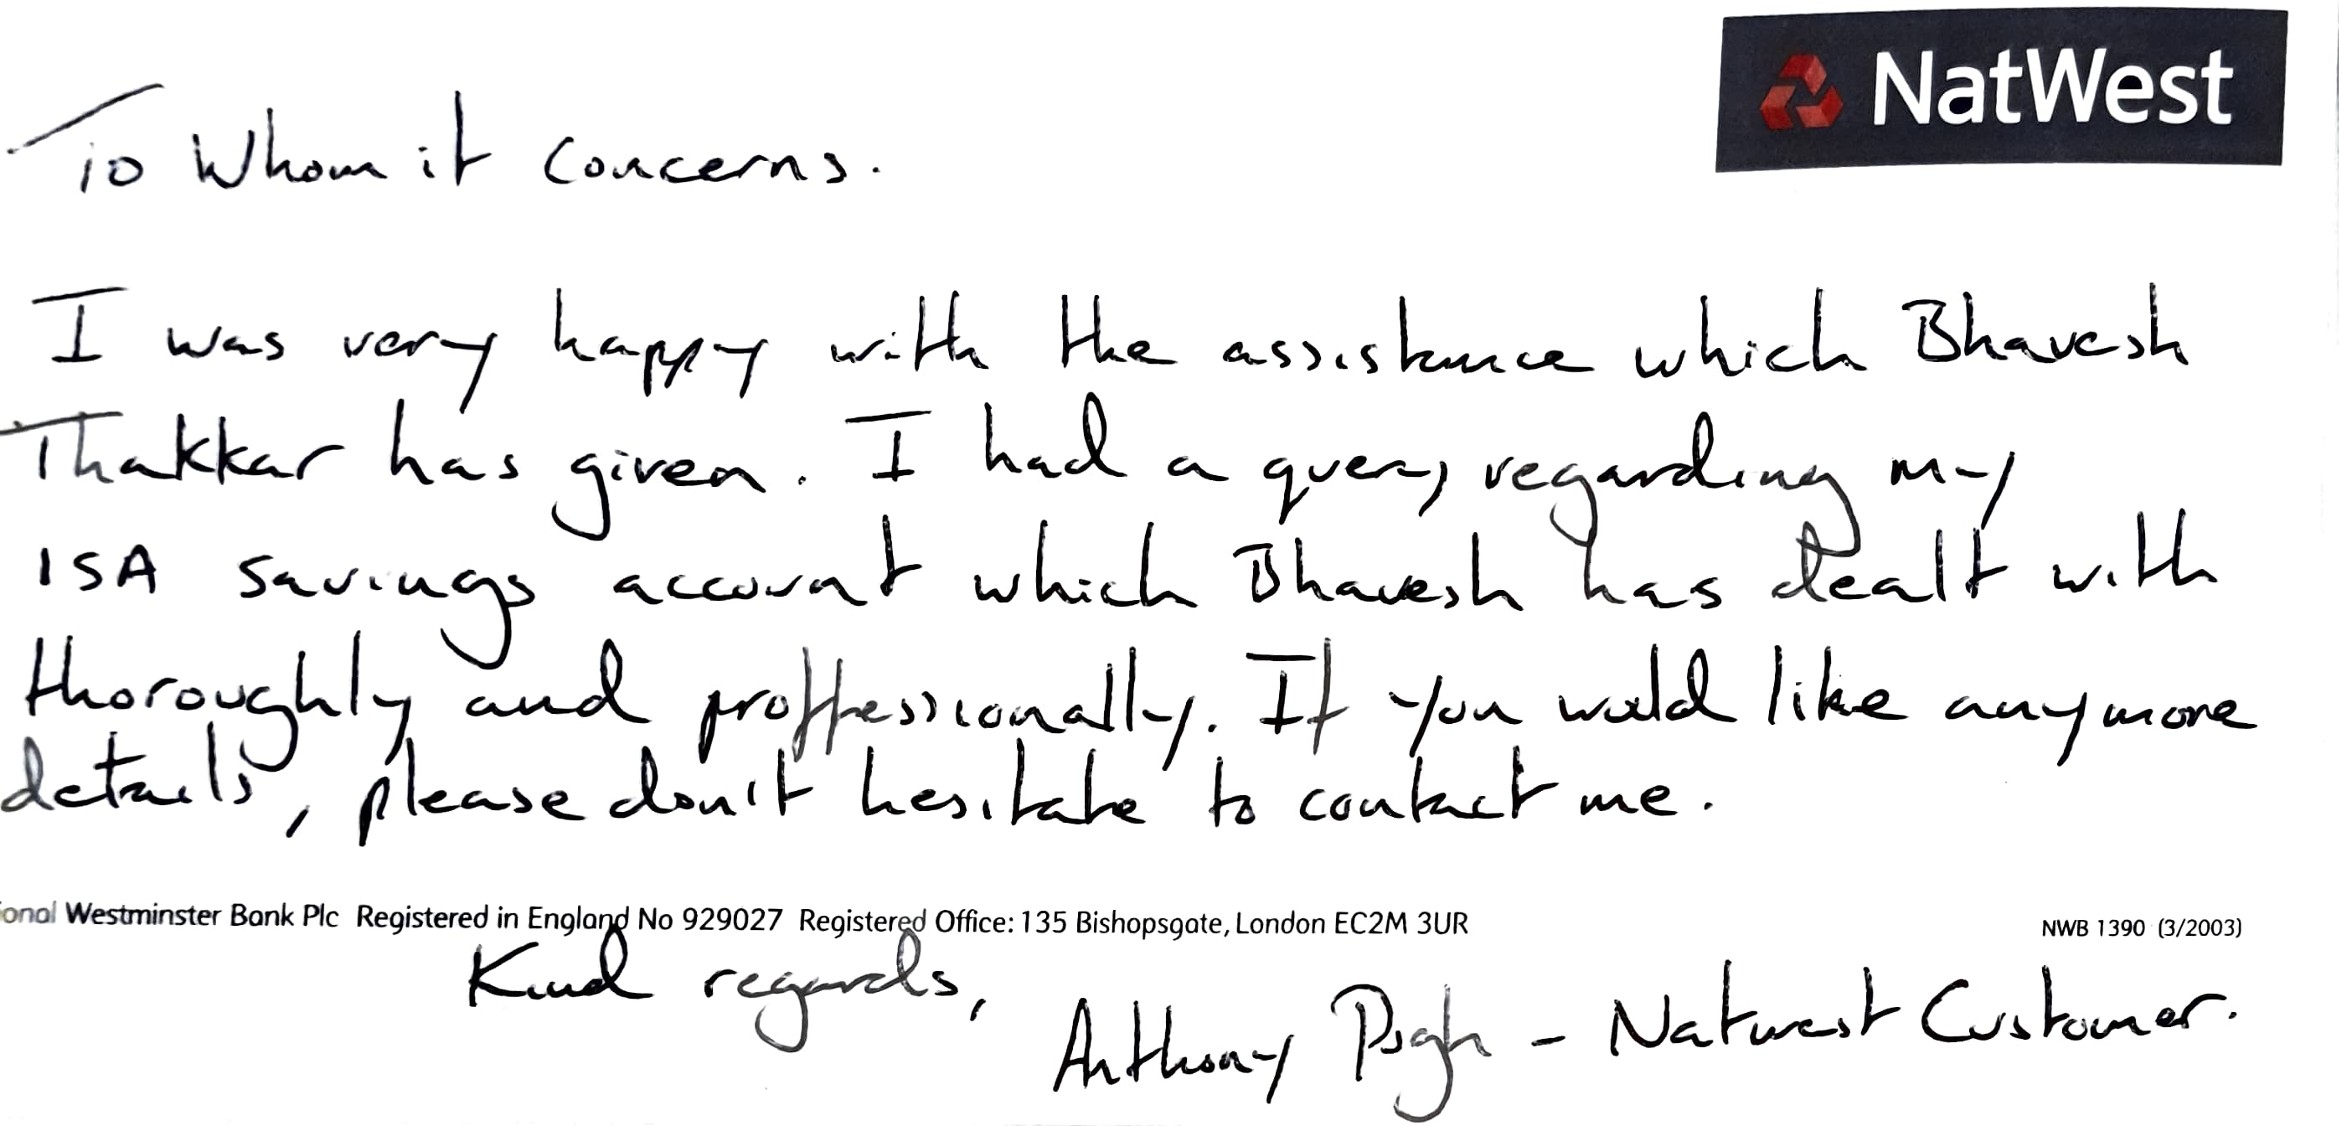 NatWest
To Whom it concerns.
I was very happy with the assistance which Bhavesh
Thakkar has given. I had a query regarding my
ISA savings account which Bhavesh has dealt with
thoroughly and proffessionally. If you would like anymore
details, please don't hesitate to contact me.
onal Westminster Bank Plc Registered in England No 929027 Registered Office: 135 Bishopsgate, London EC2M 3UR
NWB 1390 (3/2003)
Kind regards,
Anthony Pugh - Natwest Customer.